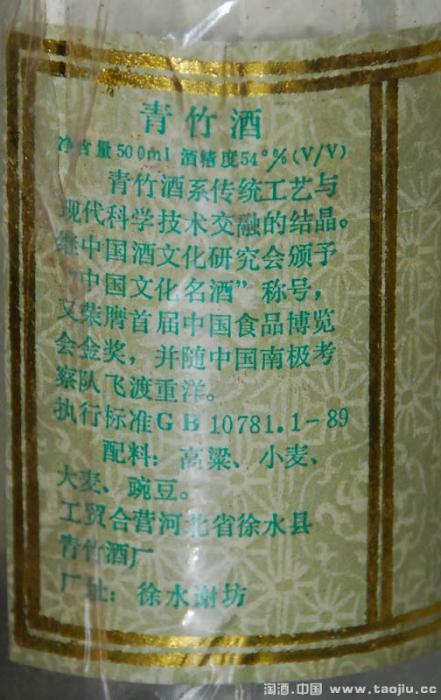 青竹酒
净含量500ml 酒精度54°%(V/V)
青竹酒系传统工艺与
现代科学技术交融的结晶。
继中国酒文化研究会颁予
“中国文化名酒”称号，
又荣膺首届中国食品博览
会金奖，并随中国南极考
察队飞渡重洋。
执行标准GB 10781.1-89
配料：高粱、小麦、
大麦、豌豆。
工贸合营河北省徐水县
青竹酒厂
厂址：徐水谢坊
淘酒.中国 www.taojiu.cc